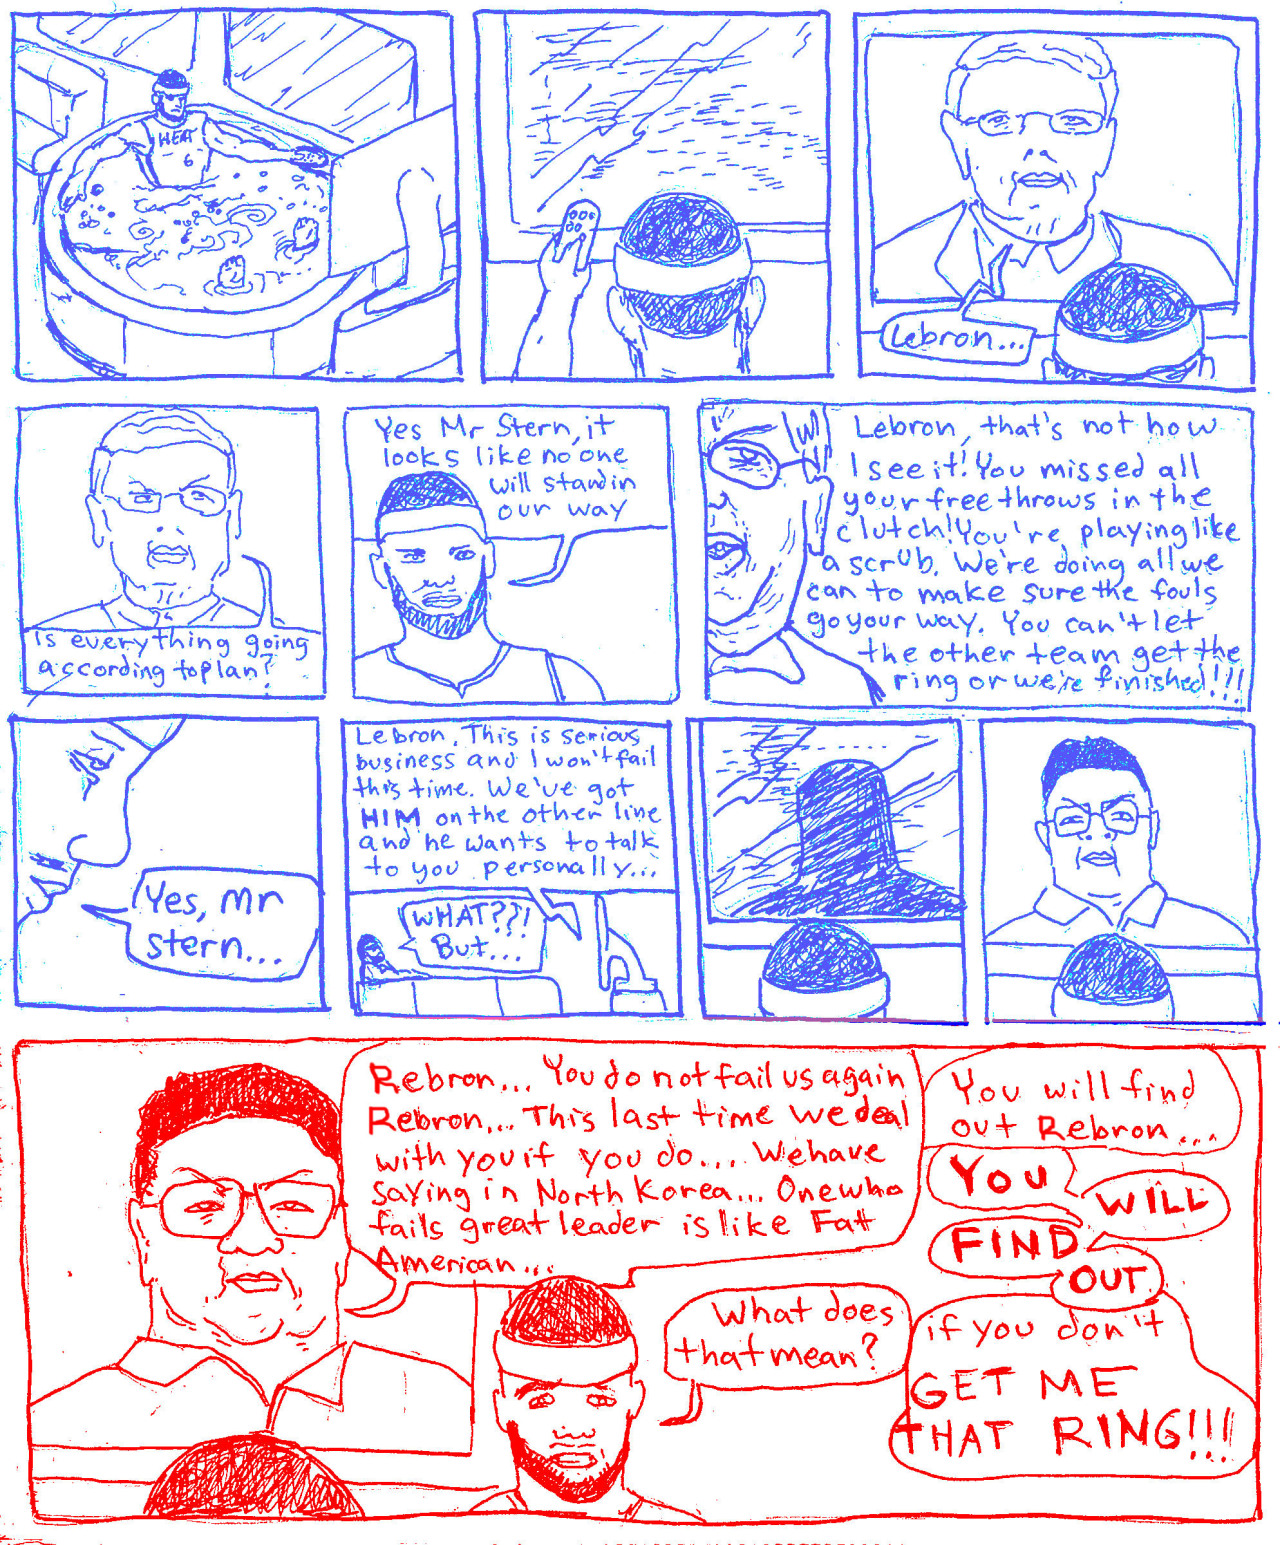 HEAT
6
Lebron...
Is everything going
according to plan?
Yes Mr Stern, it
looks like no one
will stand in
our way
Lebron, that's not how
I see it! You missed all
your free throws in the
clutch! You're playing like
a scrub. We're doing all we
can to make sure the fouls
go your way. You can't let
the other team get the
ring or we're finished!!!
Yes, Mr
Stern...
Lebron, This is serious
business and I won't fail
this time. We've got
HIM on the other line
and he wants to talk
to you personally...
WHAT??!
But...
Rebron... You do not fail us again
Rebron... This last time we deal
with you if you do.... We have
saying in North Korea... One who
fails great leader is like Fat
American...
What does
that mean?
You will find
out Rebron...
You
WILL
FIND
OUT
if you don't
GET ME
THAT RING!!!